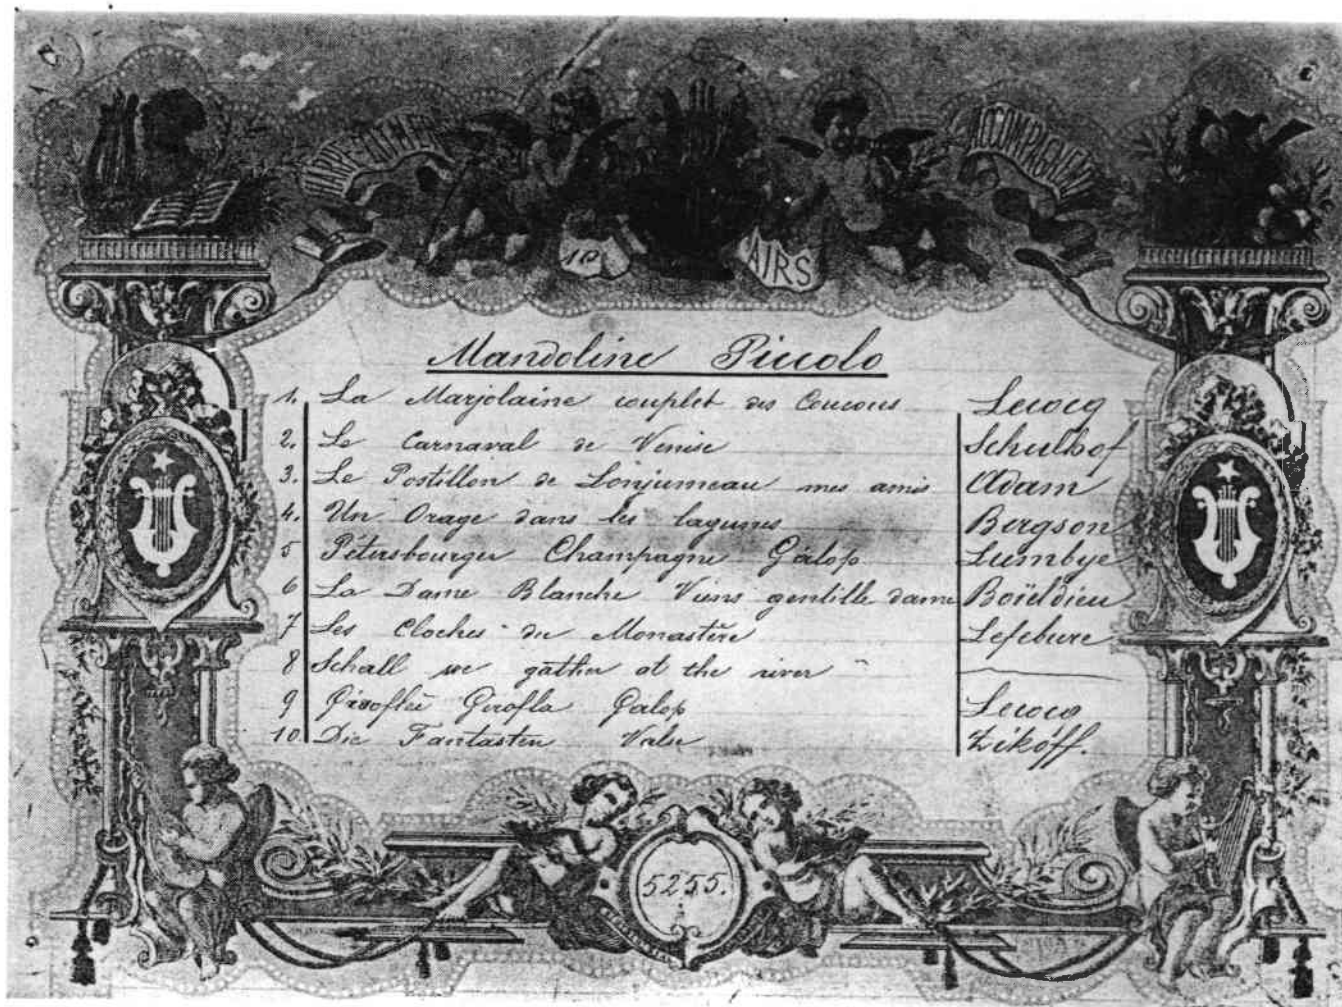 10 AIRS
Mandoline Piccolo
1. La Marjolaine couplet des Coucous Lecocq
2. Le Carnaval de Venise Schulhof
3. Le Postillon de Lonjumeau mes amis Adam
4. Un Orage dans les lagunes Bergson
5 Pétersbourger Champagne Galop Lumbye
6 La Dame Blanche Viens gentille dame Boïeldieu
7 Les Cloches du Monastère Lefebure
8 Schall we gather at the river "
9 Giroflé Girofla Galop Lecocq
10 Die Fantasten Valse Zikoff.
5255.